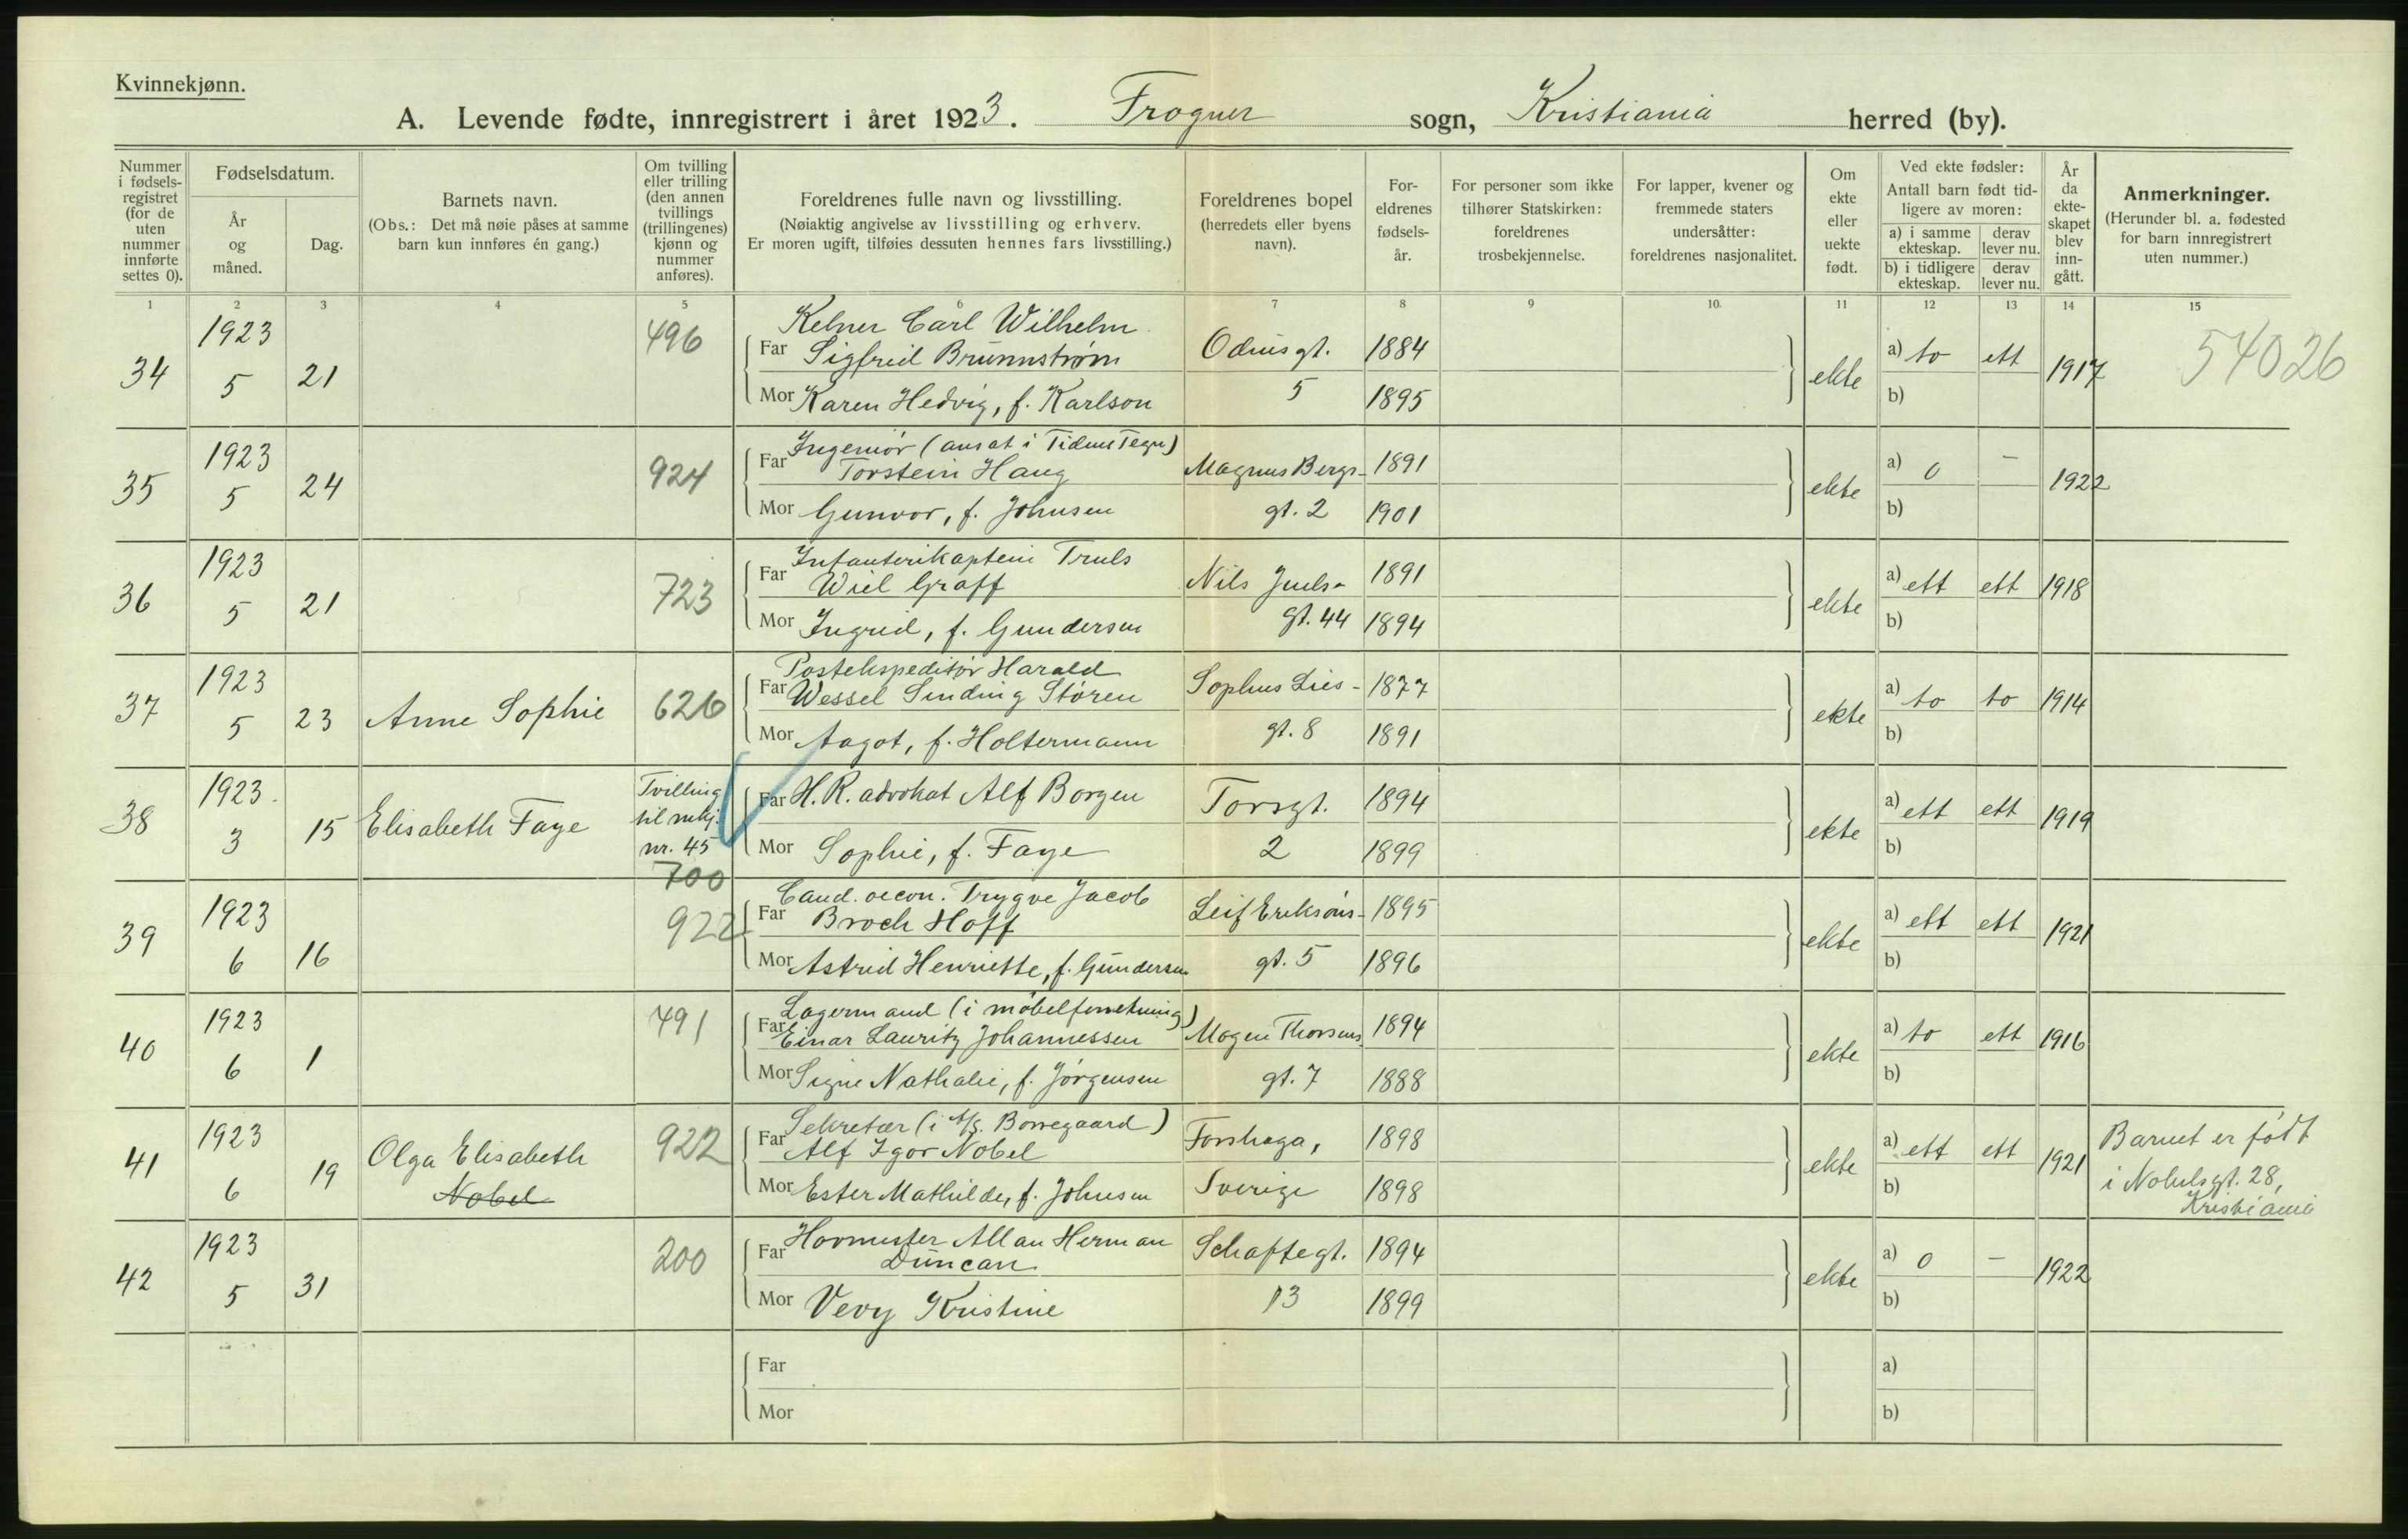 Kvinnekjønn.
A. Levende fødte, innregistrert i året 1923. Frogner sogn, Kristiania herred (by).
Nummer i fødsels-registret (for de uten nummer innførte settes 0).
Fødselsdatum.
År og måned.
Dag.
Barnets navn.
(Obs.: Det må nøie påses at samme barn kun innføres én gang.)
Om tvilling eller trilling (den annen tvillings (trillingenes) kjønn og nummer anføres).
Foreldrenes fulle navn og livsstilling.
(Nøiaktig angivelse av livsstilling og erhverv.
Er moren ugift, tilføies dessuten hennes fars livsstilling.)
Foreldrenes bopel (herredets eller byens navn).
For-eldrenes fødsels-år.
For personer som ikke tilhører Statskirken: foreldrenes trosbekjennelse.
For lapper, kvener og fremmede staters undersåtter: foreldrenes nasjonalitet.
Om ekte eller uekte født.
Ved ekte fødsler:
Antall barn født tid-ligere av moren:
a) i samme ekteskap.
derav lever nu.
b) i tidligere ekteskap.
derav lever nu.
År da ekte-skapet blev inn-gått.
Anmerkninger.
(Herunder bl. a. fødested for barn innregistrert uten nummer.)
1 2 3 4 5 6 7 8 9 10 11 12 13 14 15
34 1923 5 21 496
Kelner Carl Wilhelm
Far Sigfrid Brünnstrøm Odinsgt. 1884
Mor Karen Hedvig, f. Karlson 5 1895
ekte a) to ett b) 1917 54026
35 1923 5 24 924
Ingeniør (ansat i Tidens Tegn)
Far Torstein Haug Magnus Bergs- 1891
Mor Gunvor, f. Johnsen gt. 2 1901
ekte a) 0 - b) 1922
36 1923 5 21 723
Infanterikaptein Truls
Far Wiel Graff Nils Juels- 1891
Mor Ingrid, f. Gundersen gt. 44 1894
ekte a) ett ett b) 1918
37 1923 5 23 Anne Sophie 626
Postekspeditør Harald
Far Wessel Sinding Støren Sophus Lies- 1877
Mor Aagot, f. Holtermann gt. 8 1891
ekte a) to to b) 1914
38 1923 3 15 Elisabeth Faye
Tvilling
til mkj.
nr. 45
700
Far H. R. advokat Alf Borgen Torsgt. 1894
Mor Sophie, f. Faye 2 1899
ekte a) ett ett b) 1919
39 1923 6 16 922
Cand. oecon. Trygve Jacob
Far Broch Hoff Leif Eriksøns- 1895
Mor Astrid Henriette, f. Gundersen gt. 5 1896
ekte a) ett ett b) 1921
40 1923 6 1 491
Lagermand (i møbelforretning)
Far Einar Lauritz Johannessen Mogen Thorsens 1894
Mor Signe Nathalie, f. Jørgensen gt. 7 1888
ekte a) to ett b) 1916
41 1923 6 19 Olga Elisabeth
Nobel
922
Sekretær (i A/S. Borregaard)
Far Alf Igor Nobel Forshaga, 1898
Mor Ester Mathilde, f. Johnsen Sverige 1898
ekte a) ett ett b) 1921
Barnet er født
i Nobelsgt. 28,
Kristiania
42 1923 5 31 200
Hovmester Allan Herman
Far Duncan Schaftegt. 1894
Mor Vevy Kristine 13 1899
ekte a) 0 - b) 1922
Far a)
Mor b)